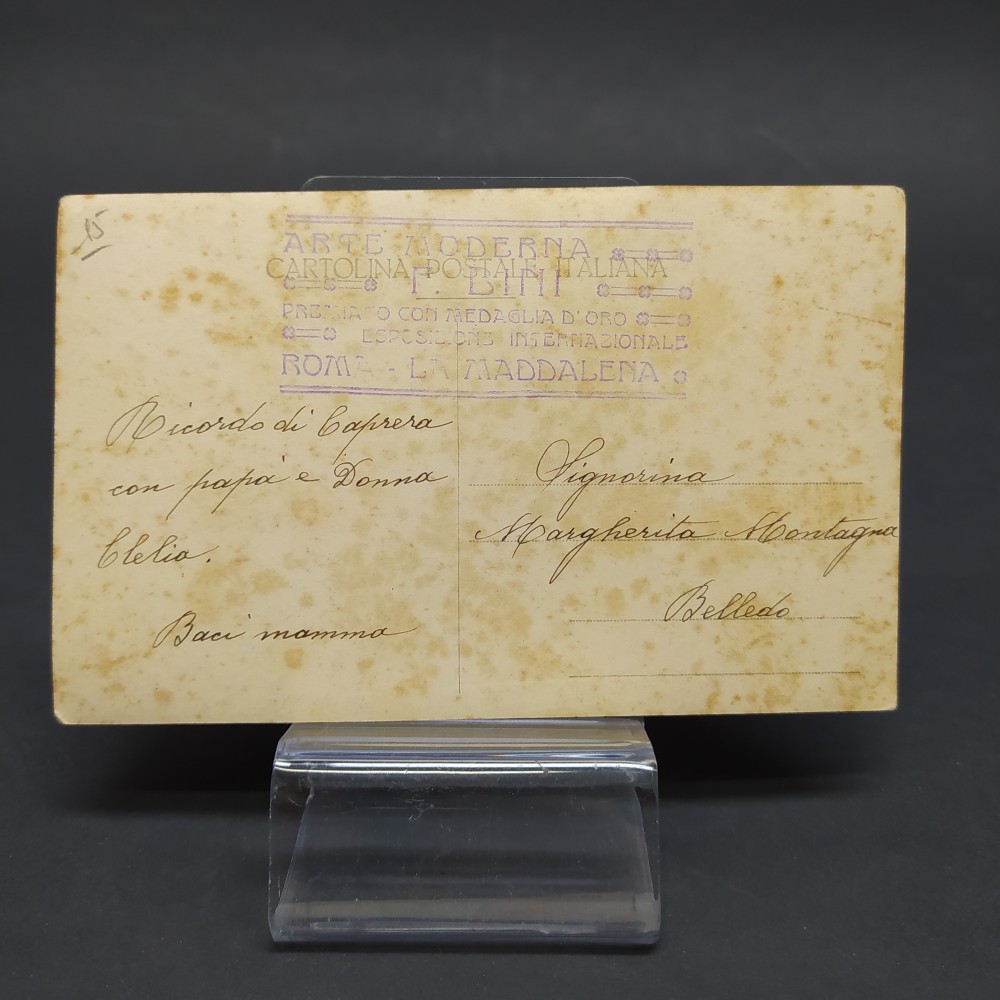 15
ARTE MODERNA
CARTOLINA POSTALE ITALIANA
F. BINI
PREMIATO CON MEDAGLIA D'ORO
ESPOSIZIONE INTERNAZIONALE
ROMA - LA MADDALENA
Ricordo di Caprera
con papà e Donna
Clelia.
Baci mamma
Signorina
Margherita Montagna
Belledo